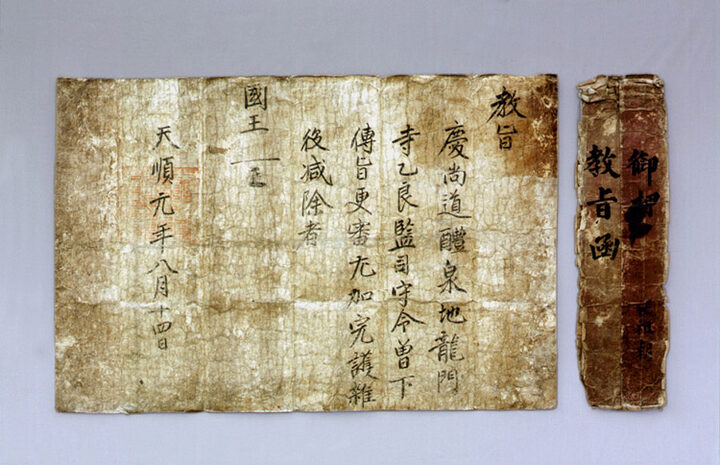 教旨
慶尚道醴泉地龍門
寺乙良監司守令曽下
傳旨更審尤加完護雜
役減除者
國王
天順元年八月十四日
御
教旨函